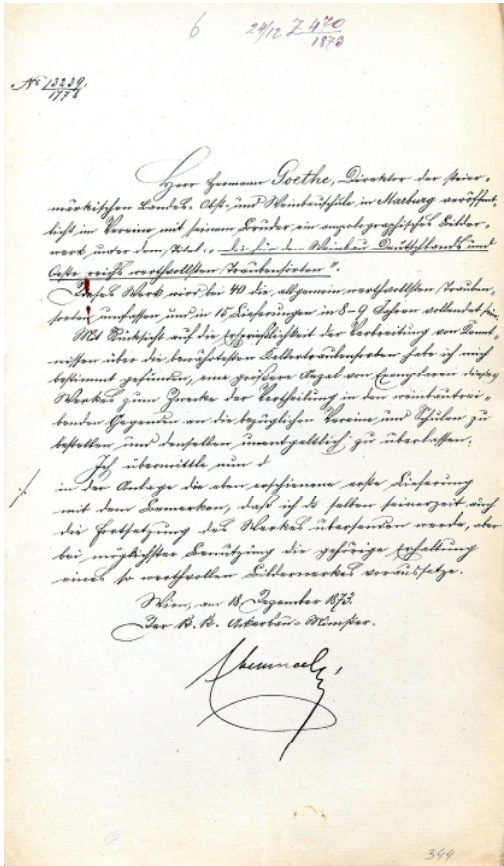 6
24/12 Z 470
1873
No 13239.
1778
Herr Hermann Goethe, Direktor der steier-
märkischen Landes-Obst- und Weinbauschule in Marburg veröffent-
licht im Vereine mit seinem Bruder ein ampelographisches Bilder-
werk unter dem Titel: „Die für den Weinbau Deutschlands und
Oesterreichs werthvollsten Traubensorten".
Dieses Werk wird bei 40 die allgemein werthvollsten Trauben-
sorten umfassen und in 15 Lieferungen in 8-9 Jahren vollendet sein.
Mit Rücksicht auf die Ersprießlichkeit der Verbreitung von Kennt-
nissen über die bewährtesten Keltertraubensorten habe ich mich
bestimmt gefunden, eine größere Anzal von Exemplaren dieses
Werkes zum Zwecke der Vertheilung in den weinbautrei-
benden Gegenden an die bezüglichen Vereine und Schulen zu
bestellen und denselben unentgeltlich zu überlassen.
Ich übermittle nun d
./. in der Anlage die eben erschienene erste Lieferung
mit dem Bemerken, daß ich de selben seinerzeit auch
die Fortsetzung des Werkes übersenden werde, aber
bei möglichster Benützung die gehörige Erhaltung
eines so werthvollen Bilderwerkes voraussetze.
Wien, am 18 Dezember 1873.
Der k. k. Ackerbau-Minister.
344